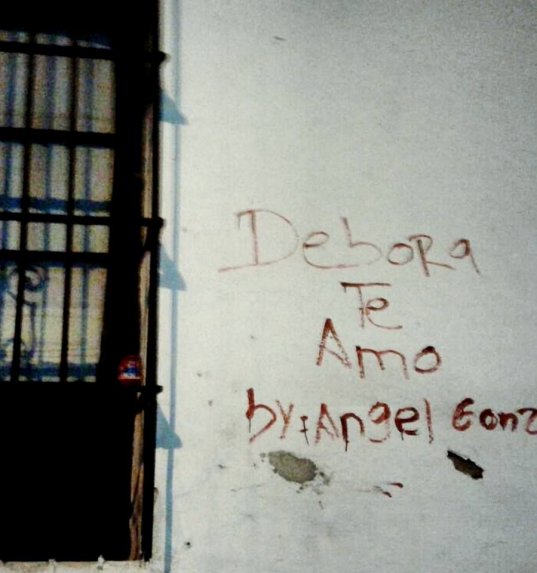 Debora
Te
Amo
by: Angel Gonz